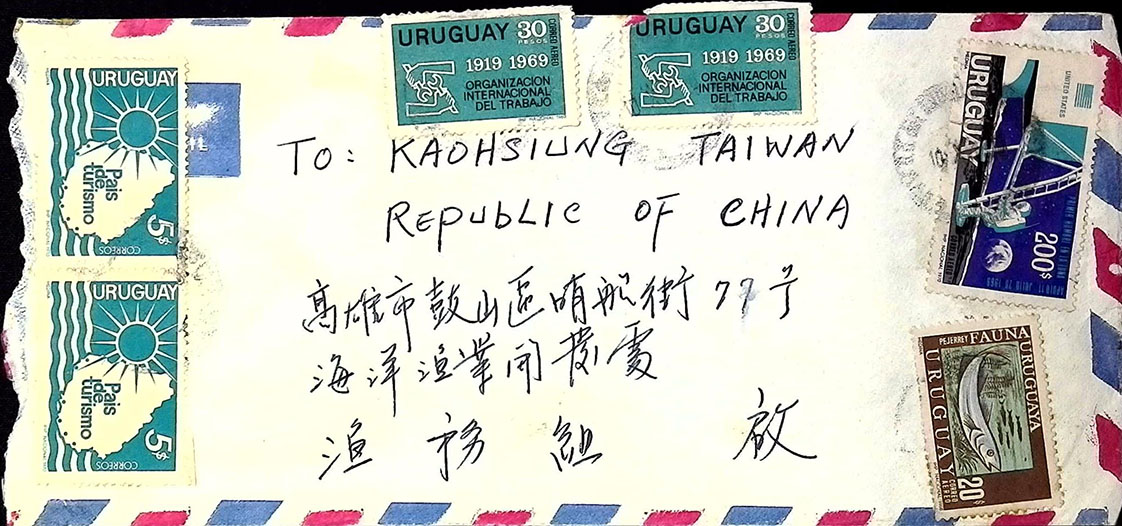 URUGUAY 30
PESOS
CORREO AEREO
1919 1969
ORGANIZACION
INTERNACIONAL
DEL TRABAJO
URUGUAY 30
PESOS
CORREO AEREO
1919 1969
ORGANIZACION
INTERNACIONAL
DEL TRABAJO
URUGUAY
País
de
turismo
5$
CORREOS
URUGUAY
País
de
turismo
5$
CORREOS
TO: KAOHSIUNG TAIWAN
REPUBLIC OF CHINA
高雄市鼓山區哨船街77号
海洋漁業開發處
漁務組 啟
UNITED STATES
URUGUAY
200$
PEJERREY FAUNA URUGUAYA
URUGUAY
CORREO
AEREO
20$